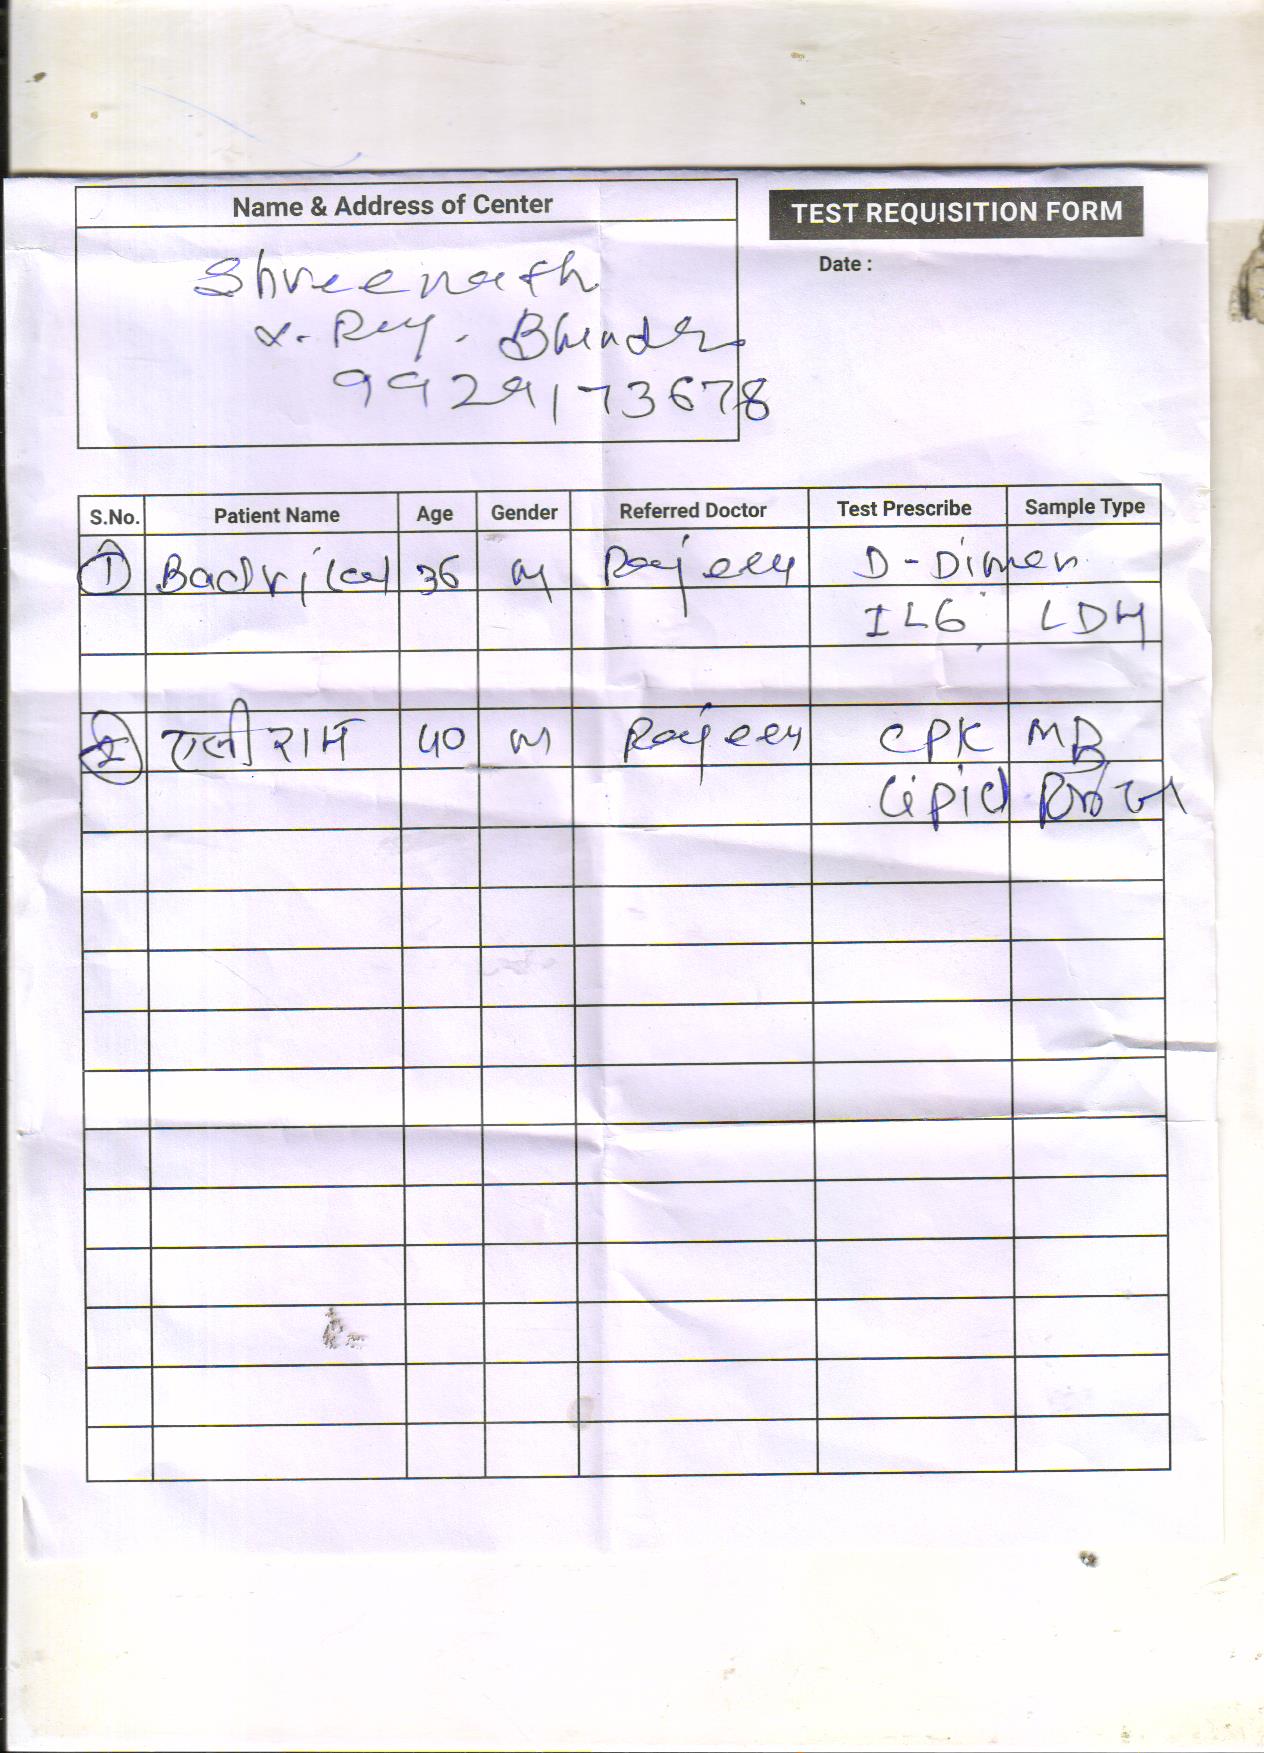 Name & Address of Center
TEST REQUISITION FORM
Date :
Shreenath
X. Ray. Bhinder
9929173678
S.No. Patient Name Age Gender Referred Doctor Test Prescribe Sample Type
1 Badrilal 36 M Rajeev D-Dimer
IL6 LDH
2 राम 40 M Rajeev CPK MB
Lipid